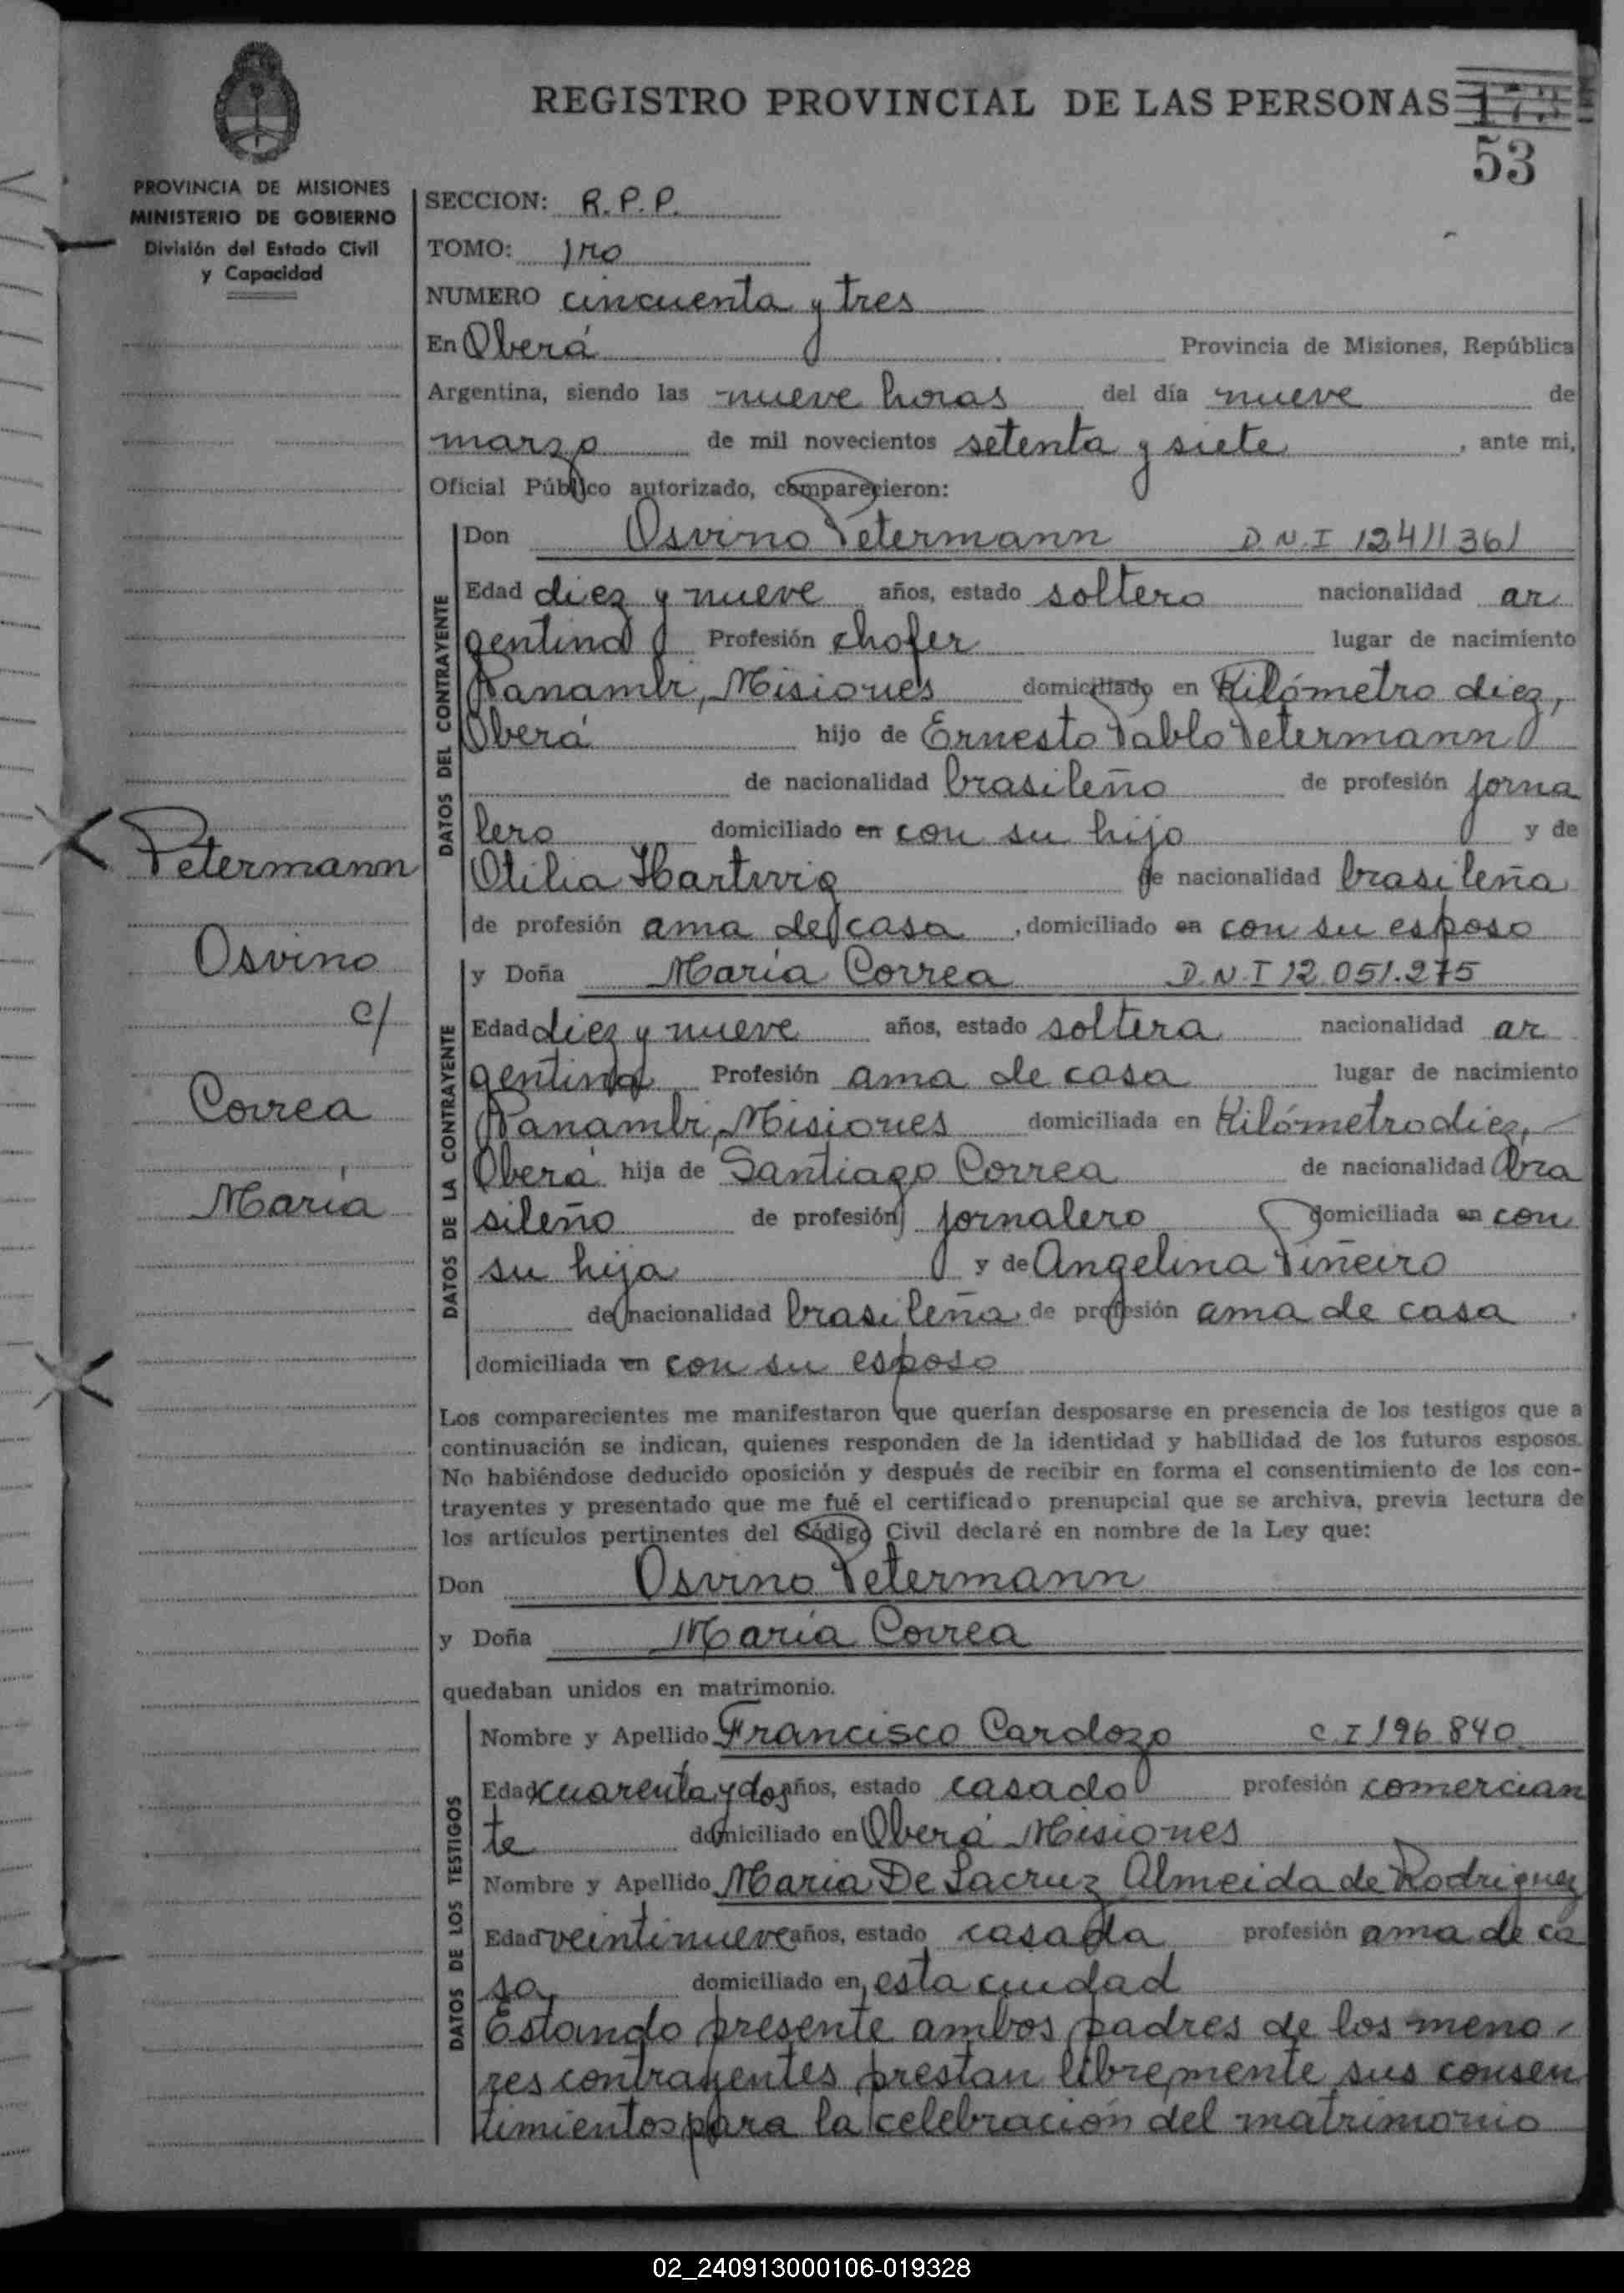 REGISTRO PROVINCIAL DE LAS PERSONAS
53
PROVINCIA DE MISIONES
MINISTERIO DE GOBIERNO
División del Estado Civil
y Capacidad
SECCION: R.P.P.
TOMO: 1ro
NUMERO cincuenta y tres
En Oberá Provincia de Misiones, República
Argentina, siendo las nueve horas del día nueve de
marzo de mil novecientos setenta y siete, ante mi,
Oficial Público autorizado, comparecieron:
DATOS DEL CONTRAYENTE
Don Osvino Petermann D.N.I 13411361
Edad diez y nueve años, estado soltero nacionalidad ar
gentina Profesión chofer lugar de nacimiento
Panambi, Misiones domiciliado en Kilómetro diez,
Oberá hijo de Ernesto Pablo Petermann
de nacionalidad brasileño de profesión jorna
lero domiciliado en con su hijo y de
Otilia Hartwig de nacionalidad brasileña
de profesión ama de casa, domiciliado en con su esposo
Petermann
Osvino
c/
Correa
María
DATOS DE LA CONTRAYENTE
y Doña María Correa D.N.I 12.051.275
Edad diez y nueve años, estado soltera nacionalidad ar
gentina Profesión ama de casa lugar de nacimiento
Panambi, Misiones domiciliada en Kilómetro diez,
Oberá hija de Santiago Correa de nacionalidad bra
sileño de profesión jornalero domiciliada en con
su hija y de Angelina Piñeiro
de nacionalidad brasileña de profesión ama de casa
domiciliada en con su esposo
Los comparecientes me manifestaron que querían desposarse en presencia de los testigos que a
continuación se indican, quienes responden de la identidad y habilidad de los futuros esposos.
No habiéndose deducido oposición y después de recibir en forma el consentimiento de los con-
trayentes y presentado que me fué el certificado prenupcial que se archiva, previa lectura de
los artículos pertinentes del Código Civil declaré en nombre de la Ley que:
Don Osvino Petermann
y Doña María Correa
quedaban unidos en matrimonio.
DATOS DE LOS TESTIGOS
Nombre y Apellido Francisco Cardozo C.I 196.840
Edad cuarenta y dos años, estado casado profesión comercian
te domiciliado en Oberá Misiones
Nombre y Apellido Maria De Lacruz Almeida de Rodriguez
Edad veintinueve años, estado casada profesión ama de ca
sa domiciliado en esta ciudad
Estando presente ambos padres de los meno-
res contrayentes prestan libremente sus consen
timientos para la celebración del matrimonio
02_240913000106-019328